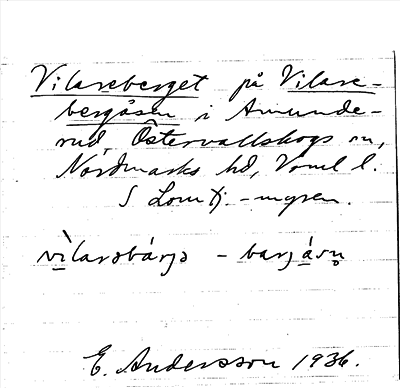 Vilareberget på Vilare-
bergåsen i Amunde-
rud, Östervallskogs sn,
Nordmarks hd, Verml l.
S Lomtj.-myren.
vìlarəbárjə - barjásn̥
E. Andersson 1936.